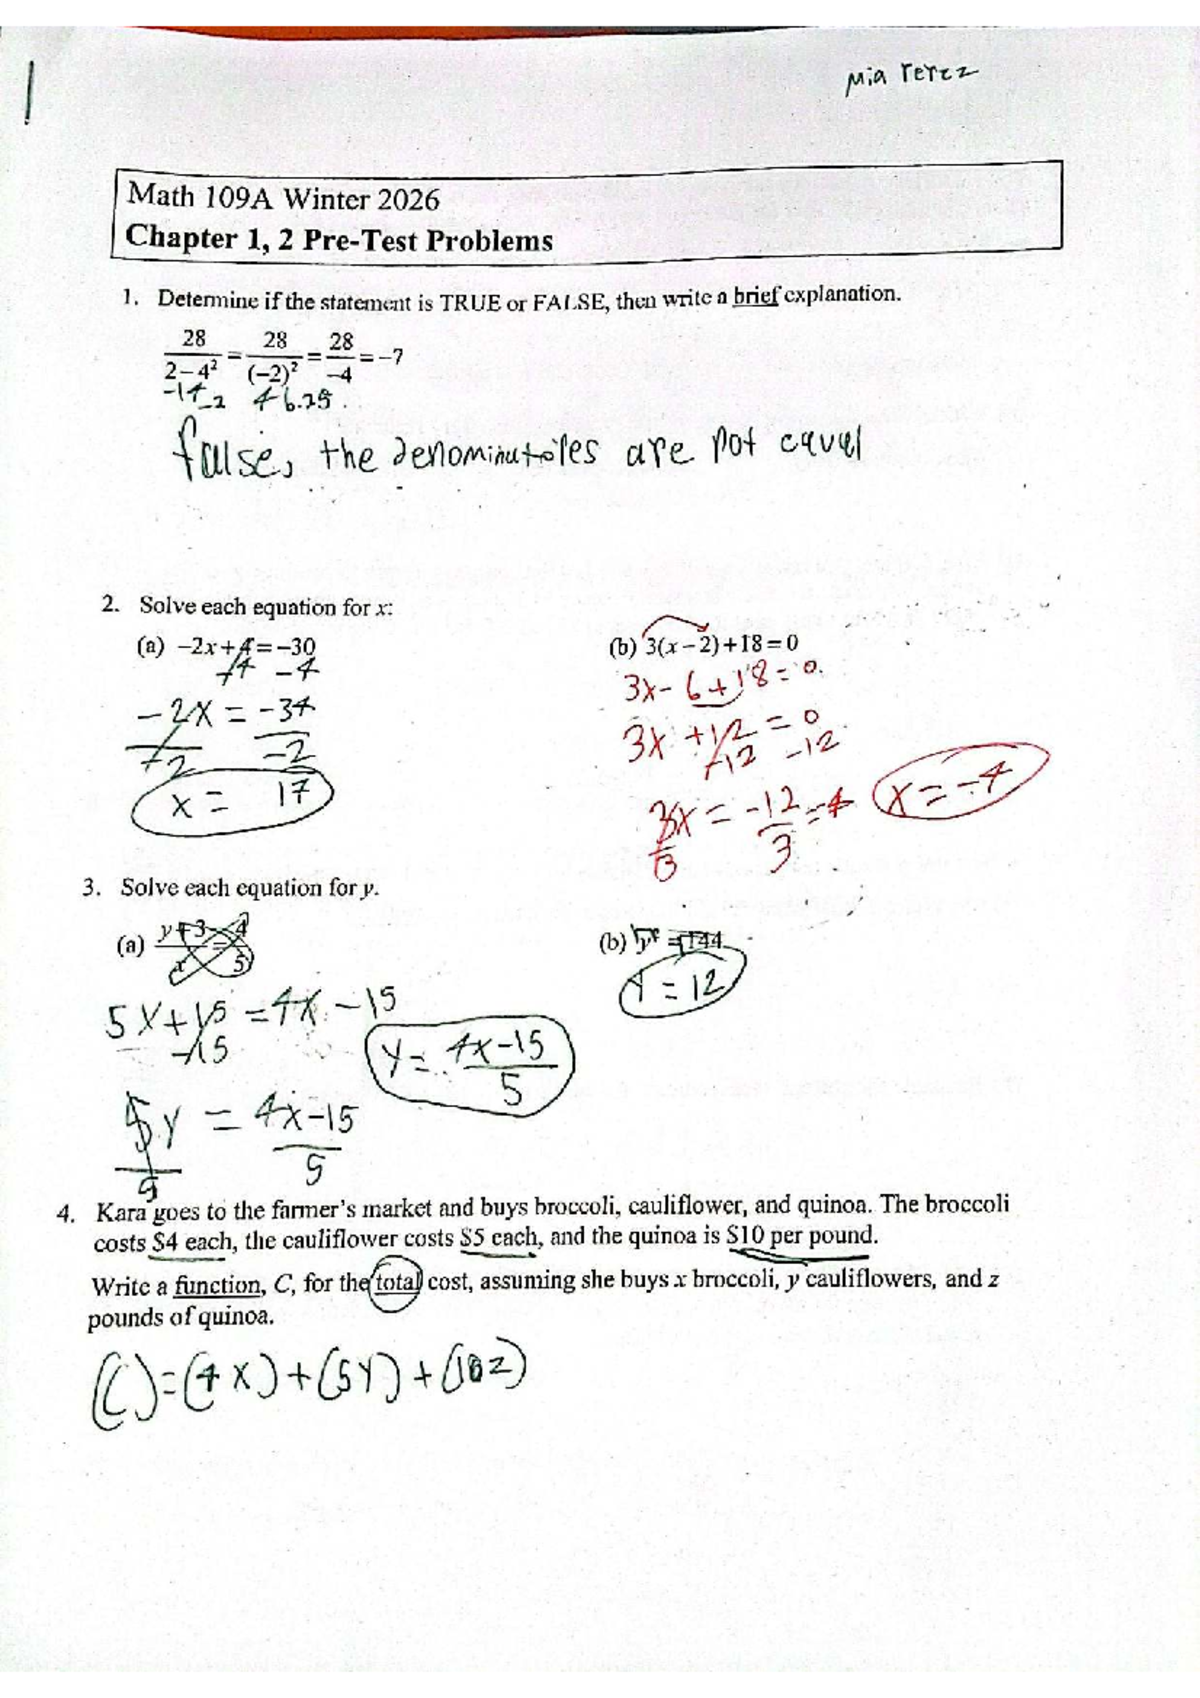 Mia Perez
Math 109A Winter 2026
Chapter 1, 2 Pre-Test Problems
1. Determine if the statement is TRUE or FALSE, then write a brief explanation.
28/(2−4²) = 28/(−2)² = 28/−4 = −7
-14 -2 4 6.25
false, the denominutoires are not equal
2. Solve each equation for x:
(a) −2x+4=−30 (b) 3(x−2)+18=0
-4 -4 3x-6+18=0.
-2x = -34 3x+12=0
-2 -2 -12 -12
x = 17 3x = -12 = -4 x=-4
3 3
3. Solve each equation for y.
(a) (y+3)/x = 4/5 (b) √y² = √144
y = 12
5y+15 = 4x -15
-15 y = (4x-15)/5
5y = 4x-15
5 5
4. Kara goes to the farmer's market and buys broccoli, cauliflower, and quinoa. The broccoli
costs $4 each, the cauliflower costs $5 each, and the quinoa is $10 per pound.
Write a function, C, for the total cost, assuming she buys x broccoli, y cauliflowers, and z
pounds of quinoa.
(C)=(4x)+(5y)+(10z)